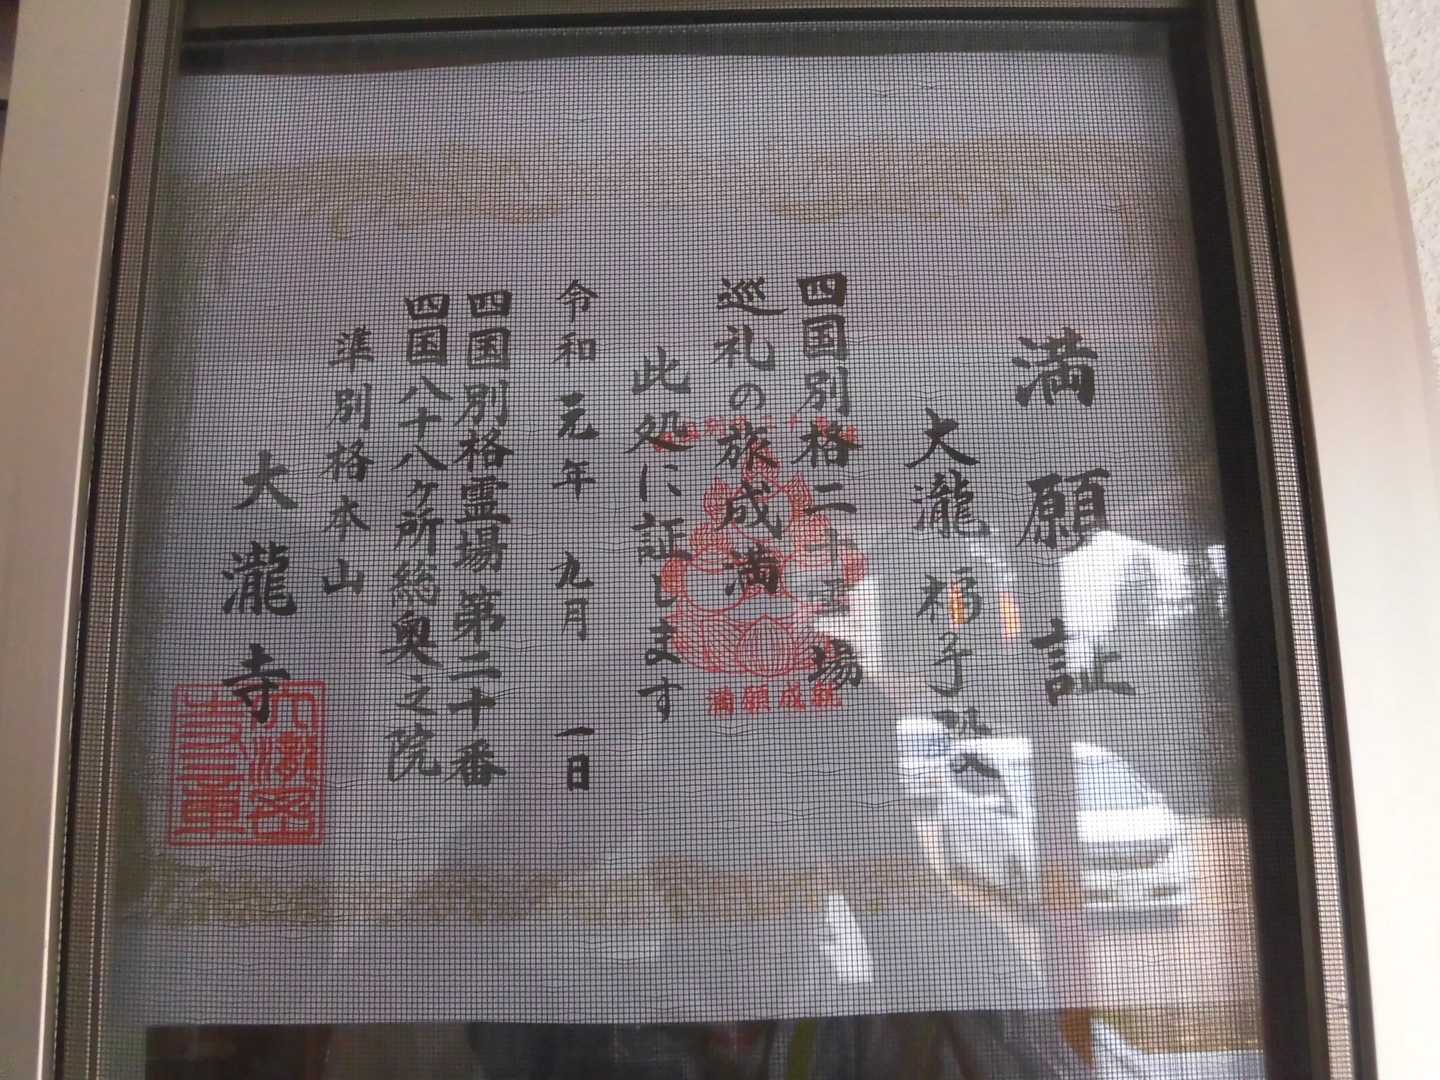 満願証
大瀧福子殿
四国別格二十霊場
巡礼の旅成満
此処に証します
令和元年 九月 一日
四国別格霊場第二十番
四国八十八ヶ所総奥之院
準別格本山
大瀧寺
満願成就